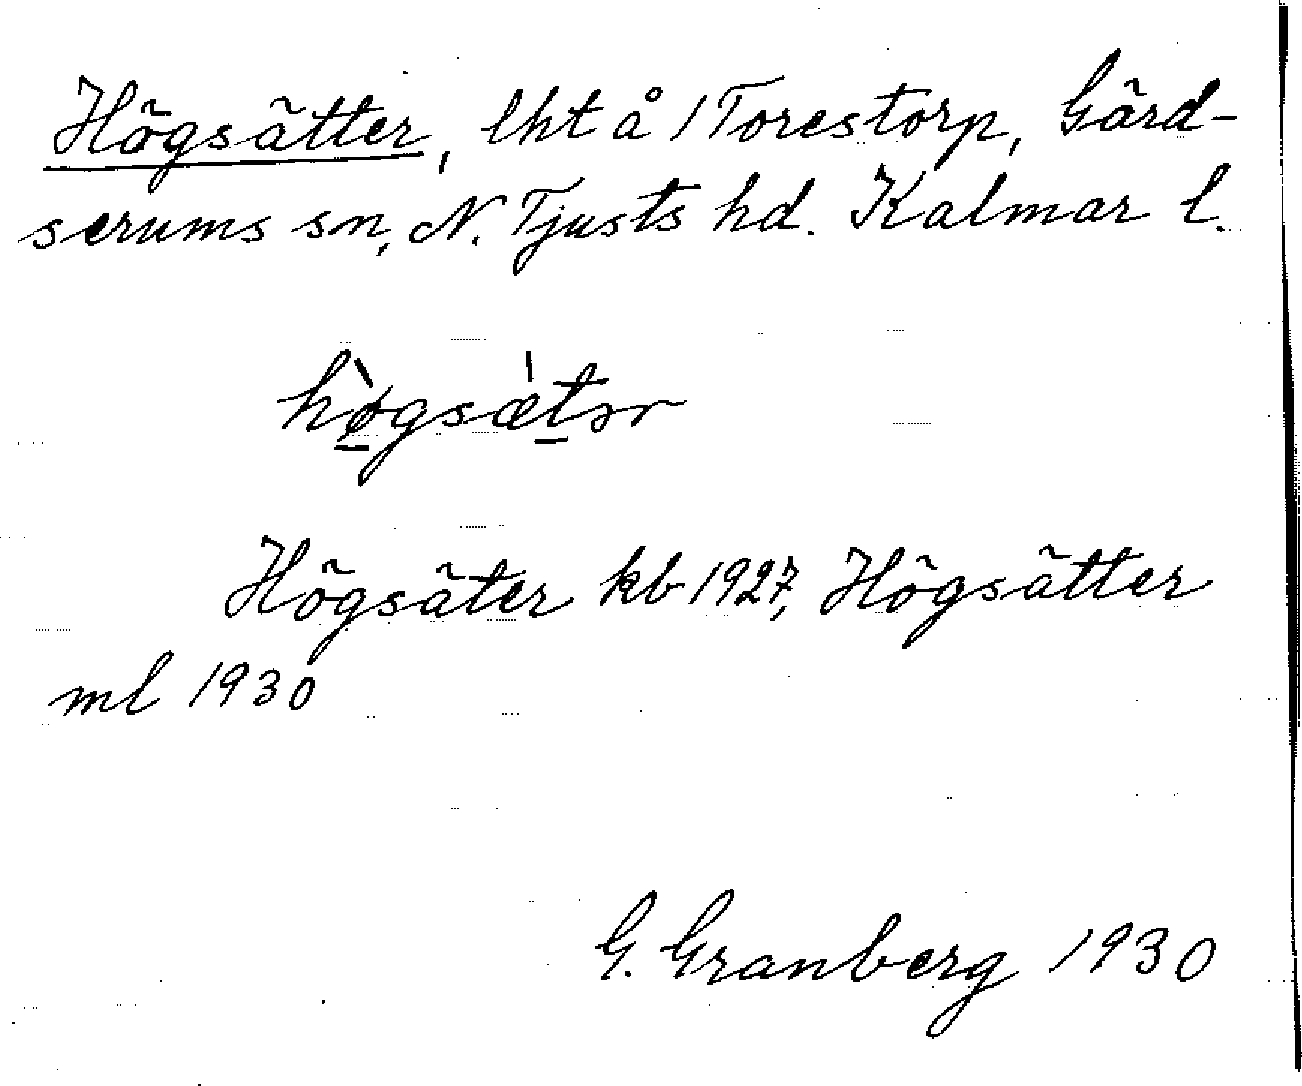 Högsätter, lht å 1 Torestorp, Gärd-
serums sn, N. Tjusts hd. Kalmar l.
hø̀gsæ̀tər
Högsäter kb 1927, Högsätter
ml 1930
G. Granberg 1930